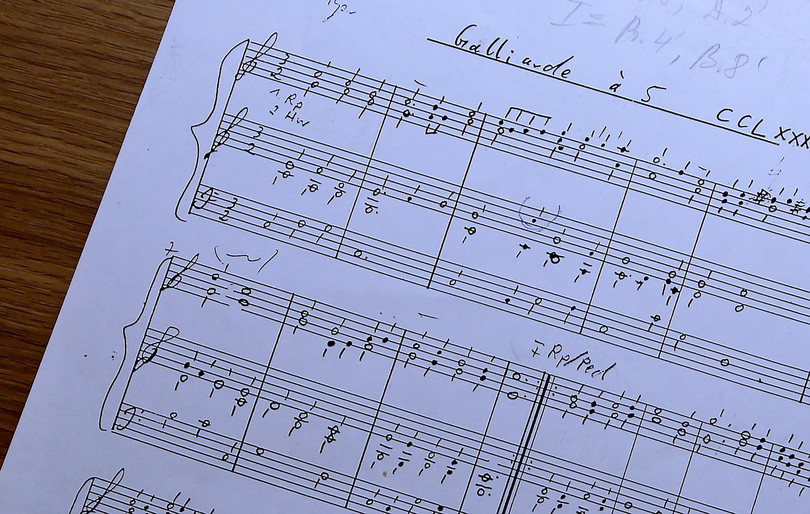 I = B.4', B.8'
Galliarde à 5 CCLXXX
3
2
1 Rp
2 Hw
3
2
3
2
+ Rp/Ped